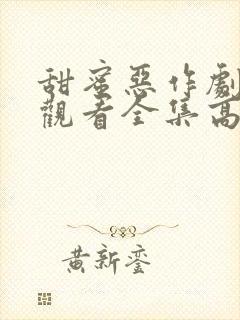 甜蜜惡作劇
觀看全集高
黃新鑾